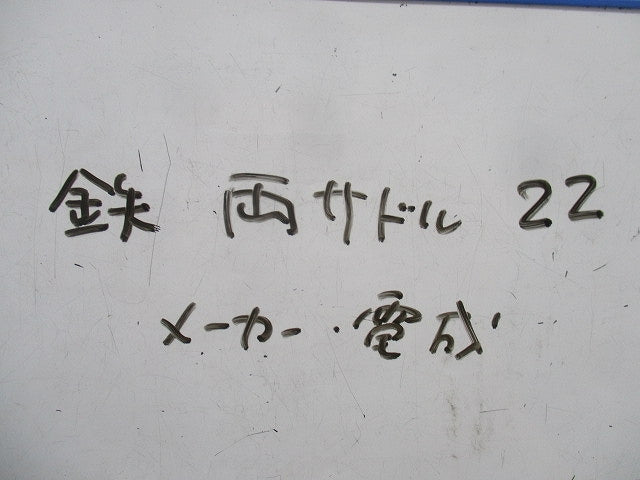 鉄 両サドル 22
メーカー・電成